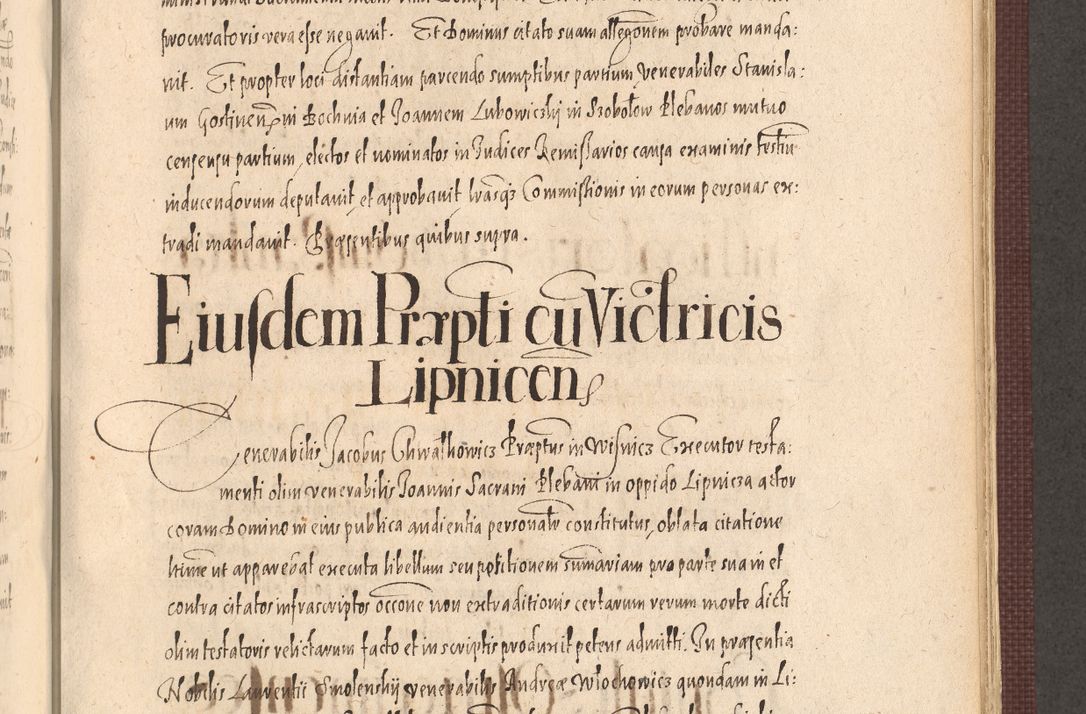 procuratoris vera esse negavit. Et Dominus citato suam allegonem probare manda:
vit. Et propter loci distantiam parcendo sumptibus partium, venerabiles Stanisla:
um Gostinen̄ in Bochnia et Joannem Lubowiczkij in Szobolow Plebanos mutuo
censensu partium, electos et nominatos in Judices Remissarios causa examinis testiū
inducendorum deputavit, et approbavit, lrasq3 Commissionis in eorum personas ex:
tradi mandavit. Præsentibus quibus supra.
Eiusdem Præpti cū Victricis
Lipnicen̄
Venerabilis Jacobus Chwalkowicz Præptus in Wisnicz Executor testa:
menti olim venerabilis Joannis Sacrani Plebani in oppido Lipnicza actor
coram Domino in eius publica audientia personalr constitutus, oblata citatione
ltime ut apparebat executa libellum seu petitionem sūmariam pro parte sua in et
contra citatos infrascriptos occone non extraditionis certarum rerum morte dicti
olim testatoris relictarum facto et in scriptis produxit petens admitti. In præsentia
Nobilis Laurentii Smolenskij venerabilis Andreæ Wlochowicz quondam in Li: